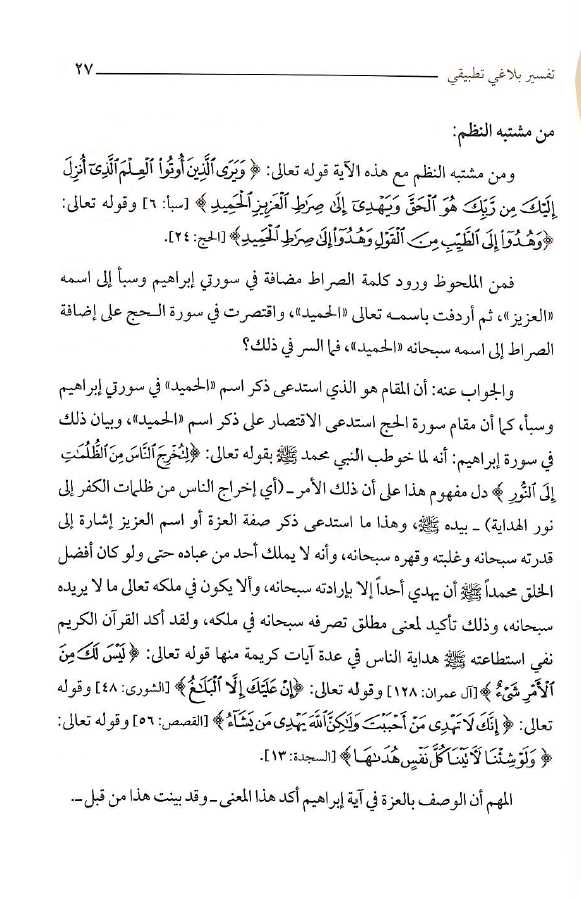 تفسير بلاغي تطبيقي ٢٧
من مشتبه النظم:
ومن مشتبه النظم مع هذه الآية قوله تعالى: ﴿ وَيَرَى ٱلَّذِينَ أُوتُوا۟ ٱلْعِلْمَ ٱلَّذِىٓ أُنزِلَ
إِلَيْكَ مِن رَّبِّكَ هُوَ ٱلْحَقَّ وَيَهْدِىٓ إِلَىٰ صِرَٰطِ ٱلْعَزِيزِ ٱلْحَمِيدِ ﴾ [سبأ: ٦] وقوله تعالى:
﴿وَهُدُوٓا۟ إِلَى ٱلطَّيِّبِ مِنَ ٱلْقَوْلِ وَهُدُوٓا۟ إِلَىٰ صِرَٰطِ ٱلْحَمِيدِ﴾ [الحج: ٢٤].
فمن الملحوظ ورود كلمة الصراط مضافة في سورتي إبراهيم وسبأ إلى اسمه
«العزيز»، ثم أردفت باسمه تعالى «الحميد»، واقتصرت في سورة الحج على إضافة
الصراط إلى اسمه سبحانه «الحميد»، فما السر في ذلك؟
والجواب عنه: أن المقام هو الذي استدعى ذكر اسم «الحميد» في سورتي إبراهيم
وسبأ، كما أن مقام سورة الحج استدعى الاقتصار على ذكر اسم «الحميد»، وبيان ذلك
في سورة إبراهيم: أنه لما خوطب النبي محمد ﷺ بقوله تعالى: ﴿لِتُخْرِجَ ٱلنَّاسَ مِنَ ٱلظُّلُمَٰتِ
إِلَى ٱلنُّورِ ﴾ دل مفهوم هذا على أن ذلك الأمر ـ (أي إخراج الناس من ظلمات الكفر إلى
نور الهداية) ـ بيده ﷺ، وهذا ما استدعى ذكر صفة العزة أو اسم العزيز إشارة إلى
قدرته سبحانه وغلبته وقهره سبحانه، وأنه لا يملك أحد من عباده حتى ولو كان أفضل
الخلق محمداً ﷺ أن يهدي أحداً إلا بإرادته سبحانه، وألا يكون في ملكه تعالى ما لا يريده
سبحانه، وذلك تأكيد لمعنى مطلق تصرفه سبحانه في ملكه، ولقد أكد القرآن الكريم
نفي استطاعته ﷺ هداية الناس في عدة آيات كريمة منها قوله تعالى: ﴿ لَيْسَ لَكَ مِنَ
ٱلْأَمْرِ شَىْءٌ ﴾ [آل عمران: ١٢٨] وقوله تعالى: ﴿إِنْ عَلَيْكَ إِلَّا ٱلْبَلَٰغُ﴾ [الشورى: ٤٨] وقوله
تعالى: ﴿ إِنَّكَ لَا تَهْدِى مَنْ أَحْبَبْتَ وَلَٰكِنَّ ٱللَّهَ يَهْدِى مَن يَشَآءُ﴾ [القصص: ٥٦] وقوله تعالى:
﴿ وَلَوْ شِئْنَا لَءَاتَيْنَا كُلَّ نَفْسٍ هُدَىٰهَا﴾ [السجدة: ١٣].
المهم أن الوصف بالعزة في آية إبراهيم أكد هذا المعنى ـ وقد بينت هذا من قبل ـ.